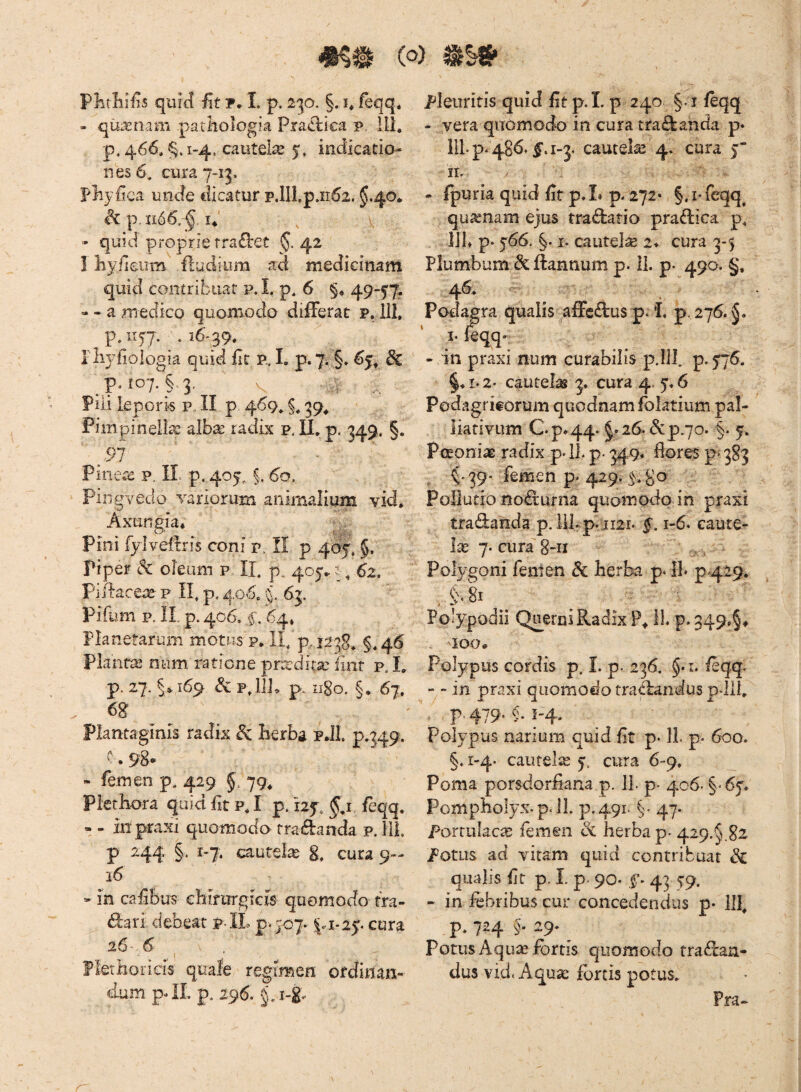 (o)
Phthisis quid sit p. I. p. 230. §. 1. seqq.
- quænam pathologia Practica p. III.
p. 466. §. 1-4. cautelæ 5. indicatio-
nes 6. cura 7-13.
Physica unde dicatur p.III.p.1162. §.40.
& p. 1166. §. 1.
- quid proprie tractet §. 42
Physicum studium ad medicinam
quid contribuat p. I. p. 6 §. 49-57.
- - a medico quomodo differat p. III.
p. 1157. . 16-39.
Physiologia quid sit p. I. p. 7. §. 65. &
p. 107. §. 3.
Pili leporis p. II p 469. §. 39.
Pimpinellæ albæ radix p. II. p. 349. §.
97
Pineæ p. II. p. 405. §. 60.
Pingvedo variorum animalium vid.
Axungia.
Pini sylvestris coni p. II p 405. §.
Piper & oleum p II. p. 405. §. 62.
Pistaceæ p II. p. 406. §. 63.
Pisum p. II. p. 406. §. 64.
Planetarum motus p. II. p. 1238. §. 46
Plantæ num ratione præditæ sint p. I.
p. 27. §. 169 & p. III. p. 1180. §. 67.
68
Plantaginis radix & herba p.II. p.349.
§. 98.
- semen p. 429 §. 79.
Plethora quid sit p. I p. 125. §.1 seqq.
- - in praxi quomodo tractanda p. III.
p 244 §. 1-7. cautelæ 8. cura 9--
16
- in casibus chirurgicis quomodo tra-
ctari debeat p. II. p. 507. §.1-25. cura
26-.6
Plethoricis quale regimen ordinan-
dum p. II. p. 296. §. 1-8.
Pleuritis quid sit p. I. p 240 §. 1 seqq
- vera quomodo in cura tractanda p.
III. p. 486. §.1-3. cautelæ 4. cura 5-
11.
- spuria quid sit p. I. p. 272. §. 1. seqq.
quænam ejus tractatio practica p.
III. p. 566. §. 1. cautelæ 2. cura 3-5
Plumbum & stannum p. II. p. 490. §.
46.
Podagra qualis affectus p. I. p. 276. §.
1. seqq.
- in praxi num curabilis p.III. p. 576.
§. 1-2. cautelæ 3. cura 4. 5. 6
Podagricorum quodnam solatium pal-
liativum C. p. 44. §. 26. & p.70. §. 5.
Pœoniæ radix p. II. p. 349. flores p. 383
§. 39. semen p. 429. §. 80
Pollutio nocturna quomodo in praxi
tractanda p. III. p. 1121. §. 1-6. caute-
læ 7. cura 8-11
Polygoni semen & herba p. II. p.429.
§. 81
Polypodii Querni Radix P. II. p. 349.§.
100.
Polypus cordis p. I. p. 236. §. 1. seqq.
- - in praxi quomodo tractandus p.III.
p. 479. §. 1-4.
Polypus narium quid sit p. II. p. 600.
§. 1-4. cautelæ 5. cura 6-9.
Poma porsdorfiana p. II. p. 406. §. 65.
Pompholyx. p. II. p. 491. §. 47.
Portulacæ semen & herba p. 429.§.82
Potus ad vitam quid contribuat &
qualis sit p. I. p. 90. §. 43 59.
- in febribus cur concedendus p. III.
p. 724 §. 29.
Potus Aquæ fortis quomodo tractan-
dus vid. Aquæ fortis potus.
Pra-